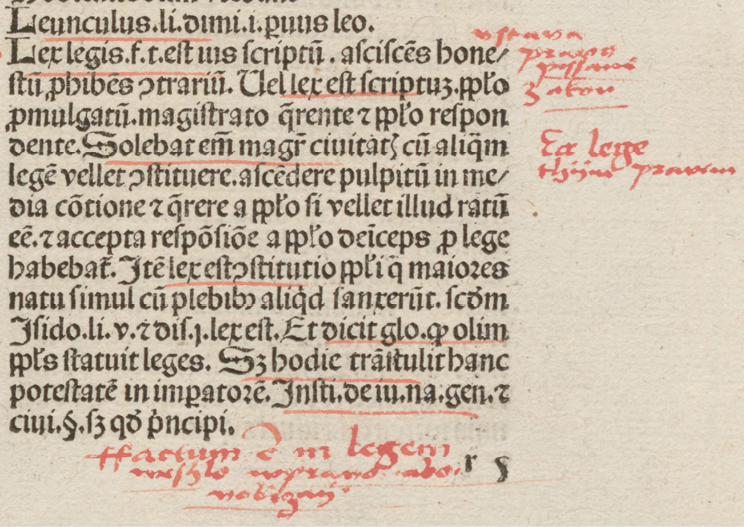 Leunculus.li.dimi.i.ꝑuus leo.
Lex legis.f.t.est ius scriptū. asciscēs hone/
stū ꝓhibēs ↄtrariū. Uel lex est scriptuꝫ.pp̄lo
ꝓmulgatū.magistrato q̄rente ⁊ pp̄lo respon
dente. Solebat em̄ magr̄ ciuitatꝭ cū aliqm̄
legē vellet ↄstituere.ascēdere pulpitū in me/
dia cōtione ⁊ q̄rere a pp̄lo si vellet illud ratū
eē.⁊ accepta respōsiōe a pp̄lo deīceps ꝓ lege
habebat̄. Itē lex est ↄstitutio pp̄li q̄ maiores
natu simul cū plebibꝰ aliqd̄ sanxerūt. scd̄m
Isido.li.v.⁊ dis.j.lex est. Et dicit glo.ꝙ olim
pp̄ls statuit leges. Sꝫ hodie trāstulit hanc
potestatē in imꝑatorē. Insti.de iu.na.gen.⁊
ciui.§.sꝫ qđ p̄ncipi.
r
vstawa
prawo
zakon
Ex lege
prawem
ffactum ē in legem